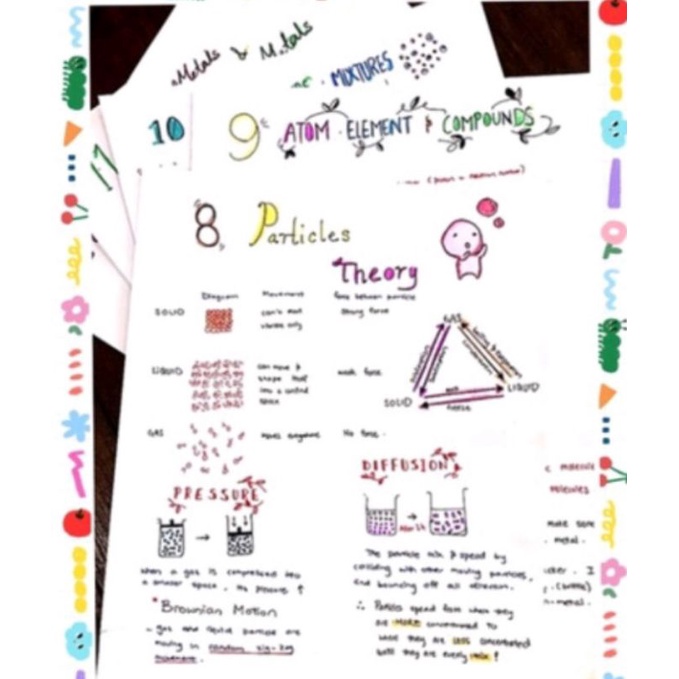 Metals & Metals
MIXTURES
10
9 ATOM ELEMENT & COMPOUNDS
11
8 Particles
Theory
Diagram Movement force between particle
SOLID can't move strong force
vibrate only
GAS
LIQUID can move & weak force
shape that
into a
space
SOLID LIQUID
freeze
GAS moves anywhere No force.
PRESSURE
DIFFUSION
c molecule
molecules
make some
metal.
when a gas is compressed into
a smaller space, the pressure ↑
The particle mix & spread by
colliding with other moving particles,
and bouncing off all direction.
(brittle)
n-metal.
* Brownian Motion
- gas and liquid particle are
moving in random zig-zag
movement.
∴ Particles spread from when they
are more concentrated to
where they are less concentrated
until they are evenly mix !